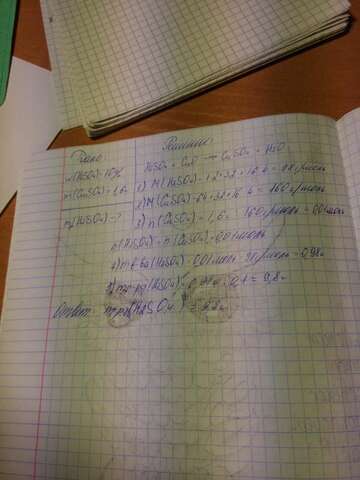 Дано
Решение
w(H2SO4)=10%
m(CuSO4)=1,6г
m(H2SO4)-?
H2SO4 + CuO → CuSO4 + H2O
1) M(H2SO4)=1·2+32+16·4=98г/моль
2) M(CuSO4)=64+32+16·4=160г/моль
3) n(CuSO4)=1,6г : 160г/моль=0,01моль
n(H2SO4)=n(CuSO4)=0,01моль
4) m (H2SO4)=0,01моль · 98г/моль=0,98г
5) m (H2SO4)=0,98г : 0,1=9,8г
Ответ: m (H2SO4)=9,8г